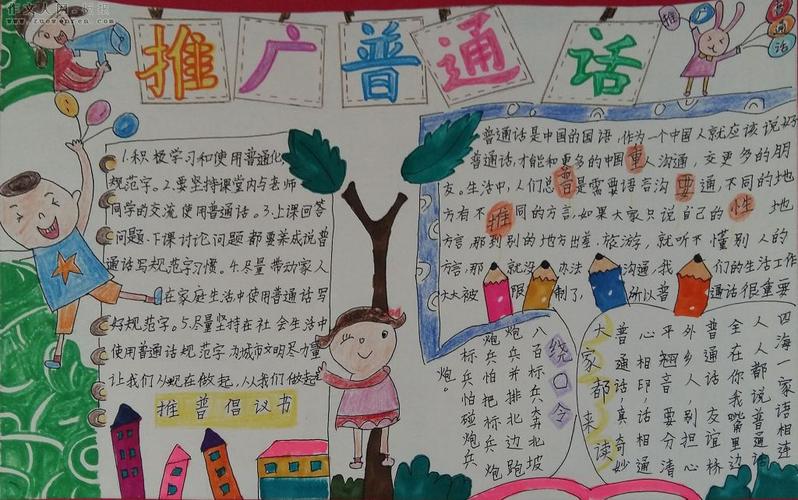 作文人网·板报
www.zuowenren.com
推广普通话
推
广
普通话
1.积极学习和使用普通化
规范字。2.要坚持课堂内与老师
同学的交流使用普通话。3.上课回答
问题、下课讨论问题都要养成说普
通话写规范字习惯。4.尽量带动家人
在家庭生活中使用普通话写
好规范字。5.尽量坚持在社会生活中
使用普通话规范字为城市文明尽力量
让我们从现在做起,从我们做起
推普倡议书
普通话是中国的国语,作为一个中国人就应该说好
普通话,才能和更多的中国重人沟通,交更多的朋
友。生活中,人们总普是需要语言沟要通,不同的地
方有不推同的方言,如果大家只说自己的性地
方言,那到别的地方出差、旅游,就听不懂别人的
方言,那就没办法沟通,我们的生活工作
大大被限制了,所以普通话很重要
绕口令
八百标兵奔北坡
炮兵并排北边跑
炮兵怕把标兵炮
标兵怕碰炮兵
炮。
四海一家语相连
人人都说普通话
全在你我嘴里边
普通话友谊桥
外乡人,别担心
平翘音要分清
心相印话相通
普通话,真奇妙
大家都来读